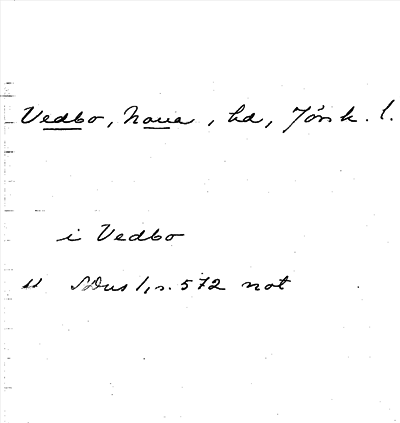 Vedbo, Norra, hd, Jönk. l.
i Vedbo
" SDns 1, s. 572 not